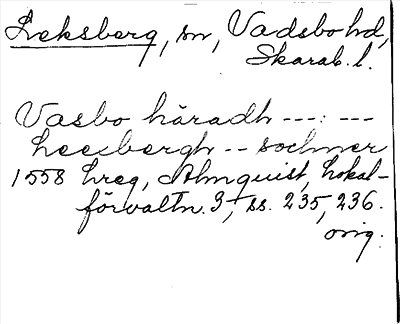 Leksberg, sn, Vadsbo hd,
Skarab. l.
Vasbo häradh ---: ---
Leebergh -- sochner
1558 hreg, Almquist, Lokal-
förvaltn. 3, ss. 235, 236.
orig.